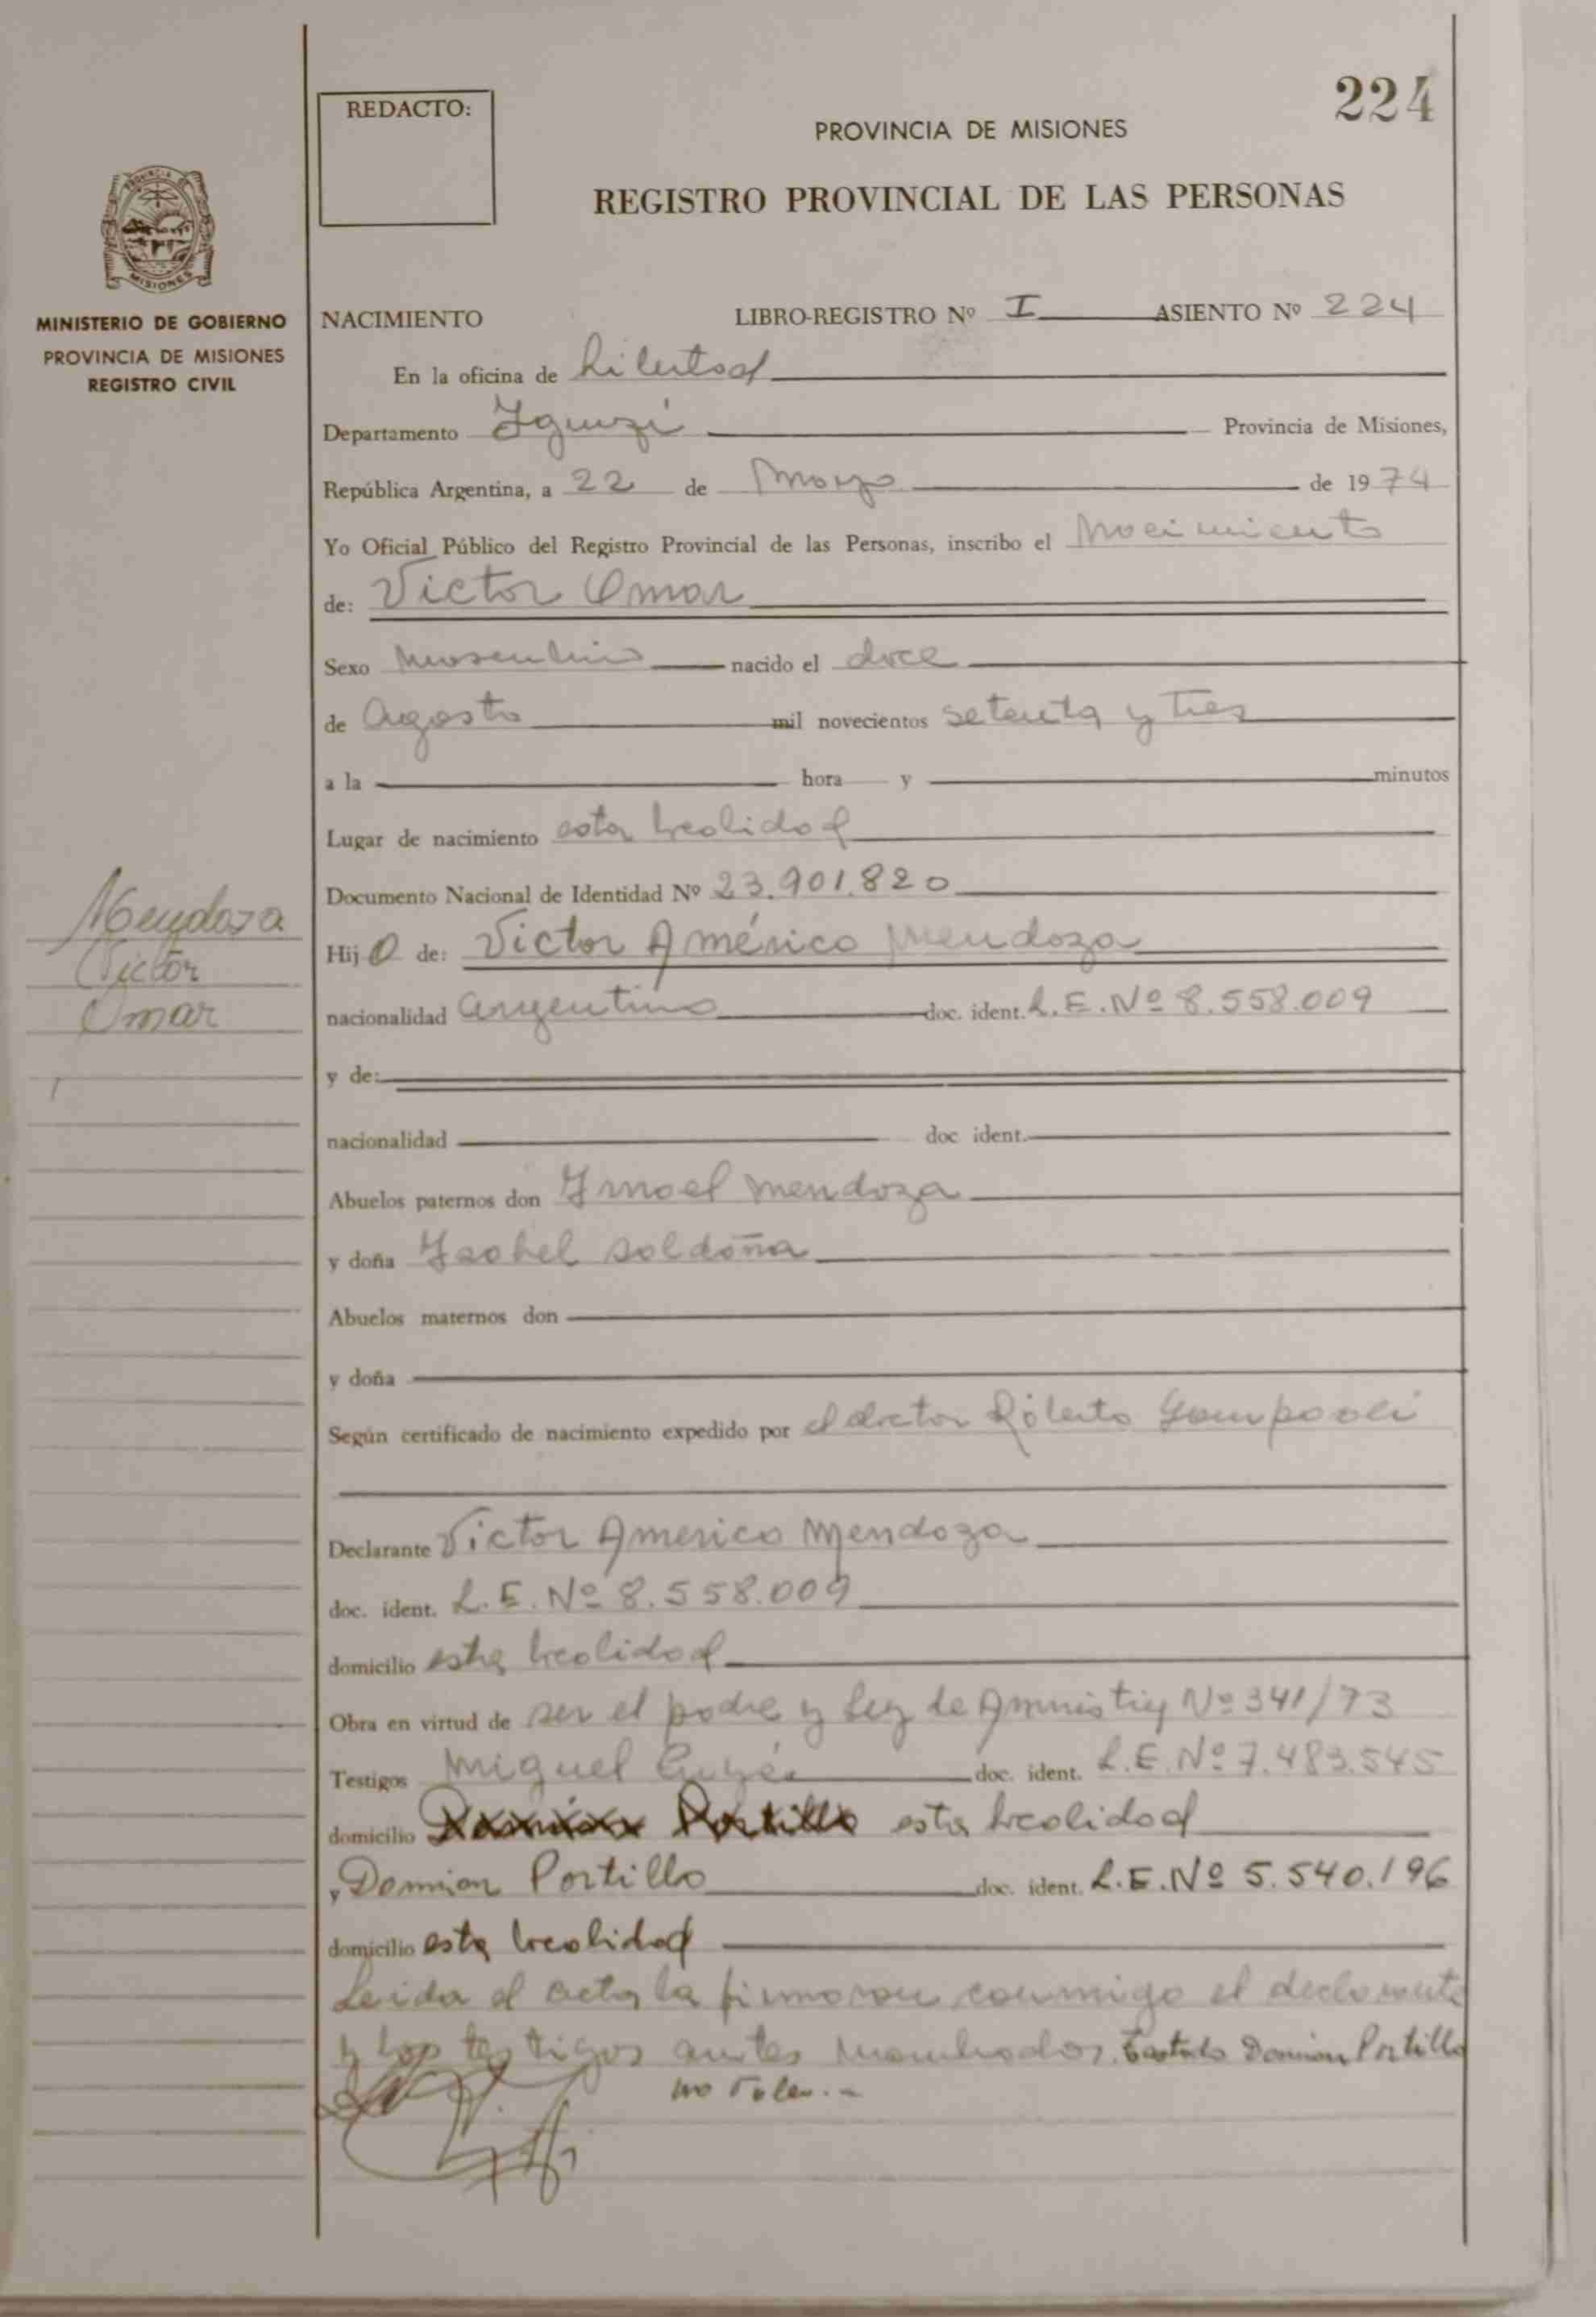 224
REDACTO:
PROVINCIA DE MISIONES
REGISTRO PROVINCIAL DE LAS PERSONAS
PROVINCIA DE
MISIONES
MINISTERIO DE GOBIERNO
PROVINCIA DE MISIONES
REGISTRO CIVIL
NACIMIENTO LIBRO-REGISTRO Nº I ASIENTO Nº 224
En la oficina de Libertad
Departamento Iguazú Provincia de Misiones,
República Argentina, a 22 de Marzo de 1974
Yo Oficial Público del Registro Provincial de las Personas, inscribo el Nacimiento
de: Victor Omar
Sexo Masculino nacido el doce
de Agosto mil novecientos setenta y tres
a la hora y minutos
Lugar de nacimiento esta localidad
Documento Nacional de Identidad Nº 23.901.820
Mendoza
Victor
Omar
Hijo de: Victor Américo Mendoza
nacionalidad argentina doc. ident. L.E.Nº 8.558.009
y de:
nacionalidad doc ident.
Abuelos paternos don Ismael Mendoza
y doña Isabel Soldaña
Abuelos maternos don
y doña
Según certificado de nacimiento expedido por el doctor Roberto
Declarante Victor Americo Mendoza
doc. ident. L.E.Nº 8.558.009
domicilio esta localidad
Obra en virtud de ser el padre y Ley de Amnistia Nº 341/73
Testigos Miguel doc. ident. L.E.Nº 7.483.545
domicilio Damian Portillo esta localidad
y Damian Portillo doc. ident. L.E.Nº 5.540.196
domicilio esta localidad
Leida el acta la firmaron conmigo el declarante
y los testigos antes nombrados. Testado Damian Portillo
no vale.-